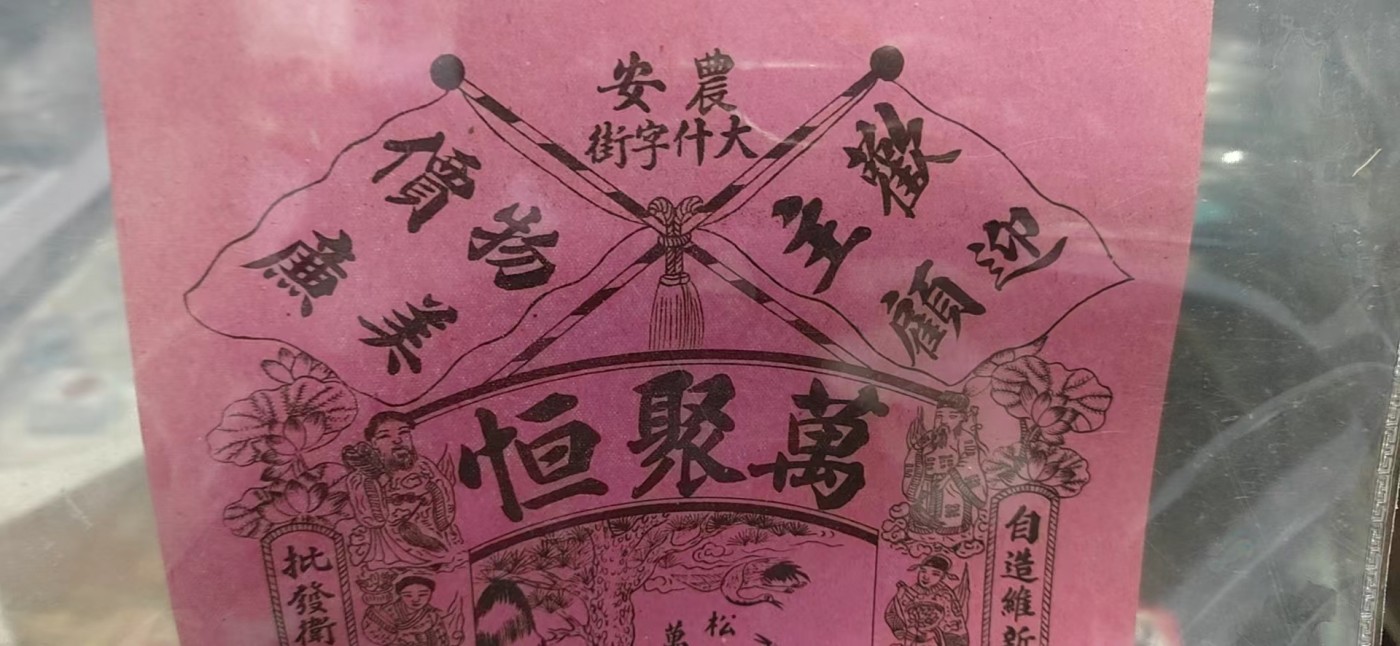 農安
大什字街
歡迎
主顧
物美
價廉
萬聚恒
自造維新
松
批發衛